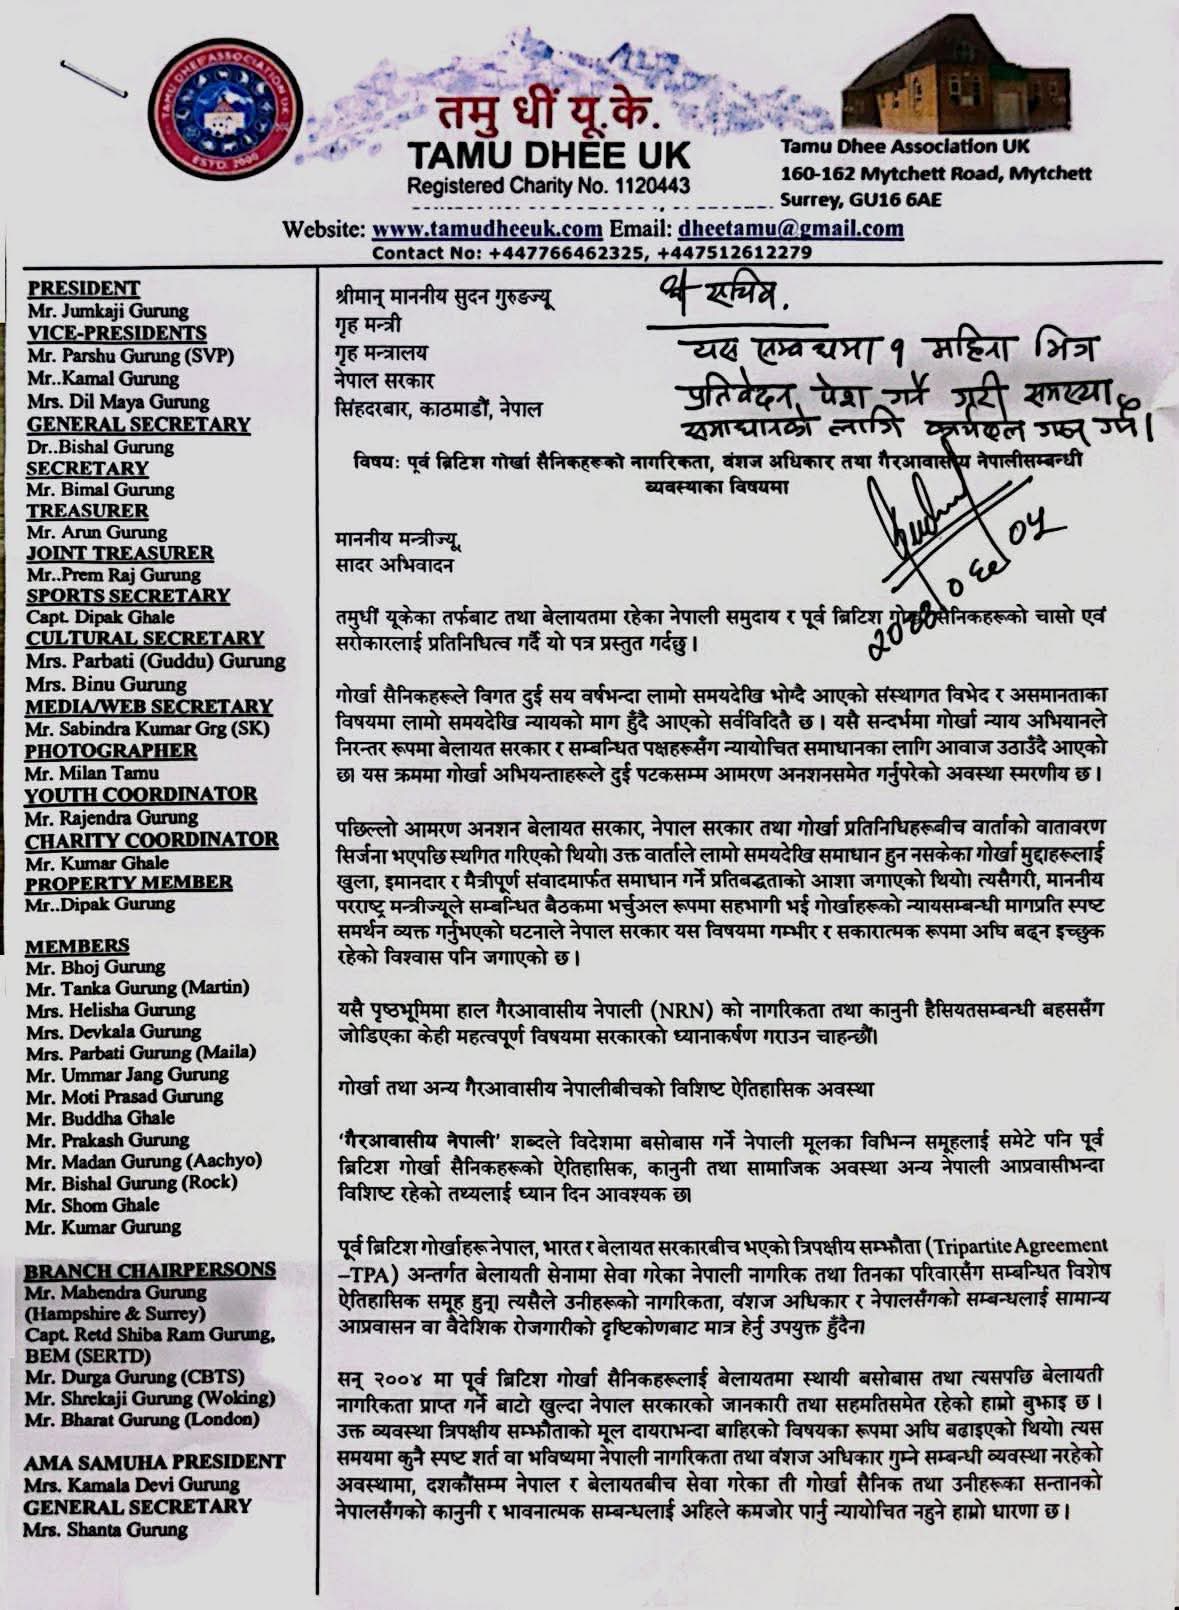 TAMU DHEE ASSOCIATION UK
ESTD. 2000
तमु धीं यू.के.
TAMU DHEE UK
Registered Charity No. 1120443
Tamu Dhee Association UK
160-162 Mytchett Road, Mytchett
Surrey, GU16 6AE
Website: www.tamudheeuk.com Email: dheetamu@gmail.com
Contact No: +447766462325, +447512612279
PRESIDENT
Mr. Jumkaji Gurung
VICE-PRESIDENTS
Mr. Parshu Gurung (SVP)
Mr..Kamal Gurung
Mrs. Dil Maya Gurung
GENERAL SECRETARY
Dr..Bishal Gurung
SECRETARY
Mr. Bimal Gurung
TREASURER
Mr. Arun Gurung
JOINT TREASURER
Mr..Prem Raj Gurung
SPORTS SECRETARY
Capt. Dipak Ghale
CULTURAL SECRETARY
Mrs. Parbati (Guddu) Gurung
Mrs. Binu Gurung
MEDIA/WEB SECRETARY
Mr. Sabindra Kumar Grg (SK)
PHOTOGRAPHER
Mr. Milan Tamu
YOUTH COORDINATOR
Mr. Rajendra Gurung
CHARITY COORDINATOR
Mr. Kumar Ghale
PROPERTY MEMBER
Mr..Dipak Gurung
MEMBERS
Mr. Bhoj Gurung
Mr. Tanka Gurung (Martin)
Mrs. Helisha Gurung
Mrs. Devkala Gurung
Mrs. Parbati Gurung (Maila)
Mr. Ummar Jang Gurung
Mr. Moti Prasad Gurung
Mr. Buddha Ghale
Mr. Prakash Gurung
Mr. Madan Gurung (Aachyo)
Mr. Bishal Gurung (Rock)
Mr. Shom Ghale
Mr. Kumar Gurung
BRANCH CHAIRPERSONS
Mr. Mahendra Gurung
(Hampshire & Surrey)
Capt. Retd Shiba Ram Gurung,
BEM (SERTD)
Mr. Durga Gurung (CBTS)
Mr. Shrekaji Gurung (Woking)
Mr. Bharat Gurung (London)
AMA SAMUHA PRESIDENT
Mrs. Kamala Devi Gurung
GENERAL SECRETARY
Mrs. Shanta Gurung
श्रीमान् माननीय सुदन गुरुङज्यू
गृह मन्त्री
गृह मन्त्रालय
नेपाल सरकार
सिंहदरबार, काठमाडौं, नेपाल
सचिव.
यस सम्बन्धमा १ महिना भित्र
प्रतिवेदन पेश गर्ने गरी समस्या
समाधानको लागि कार्यदल गठन गर्ने।
विषय: पूर्व ब्रिटिश गोर्खा सैनिकहरूको नागरिकता, वंशज अधिकार तथा गैरआवासीय नेपालीसम्बन्धी
व्यवस्थाका विषयमा
माननीय मन्त्रीज्यू,
सादर अभिवादन
तमुधीं यूकेका तर्फबाट तथा बेलायतमा रहेका नेपाली समुदाय र पूर्व ब्रिटिश गोर्खा सैनिकहरूको चासो एवं
सरोकारलाई प्रतिनिधित्व गर्दै यो पत्र प्रस्तुत गर्दछु ।
गोर्खा सैनिकहरूले विगत दुई सय वर्षभन्दा लामो समयदेखि भोग्दै आएको संस्थागत विभेद र असमानताका
विषयमा लामो समयदेखि न्यायको माग हुँदै आएको सर्वविदितै छ । यसै सन्दर्भमा गोर्खा न्याय अभियानले
निरन्तर रूपमा बेलायत सरकार र सम्बन्धित पक्षहरूसँग न्यायोचित समाधानका लागि आवाज उठाउँदै आएको
छ। यस क्रममा गोर्खा अभियन्ताहरूले दुई पटकसम्म आमरण अनशनसमेत गर्नुपरेको अवस्था स्मरणीय छ ।
पछिल्लो आमरण अनशन बेलायत सरकार, नेपाल सरकार तथा गोर्खा प्रतिनिधिहरूबीच वार्ताको वातावरण
सिर्जना भएपछि स्थगित गरिएको थियो। उक्त वार्ताले लामो समयदेखि समाधान हुन नसकेका गोर्खा मुद्दाहरूलाई
खुला, इमानदार र मैत्रीपूर्ण संवादमार्फत समाधान गर्ने प्रतिबद्धताको आशा जगाएको थियो। त्यसैगरी, माननीय
परराष्ट्र मन्त्रीज्यूले सम्बन्धित बैठकमा भर्चुअल रूपमा सहभागी भई गोर्खाहरूको न्यायसम्बन्धी मागप्रति स्पष्ट
समर्थन व्यक्त गर्नुभएको घटनाले नेपाल सरकार यस विषयमा गम्भीर र सकारात्मक रूपमा अघि बढ्न इच्छुक
रहेको विश्वास पनि जगाएको छ ।
यसै पृष्ठभूमिमा हाल गैरआवासीय नेपाली (NRN) को नागरिकता तथा कानुनी हैसियतसम्बन्धी बहससँग
जोडिएका केही महत्वपूर्ण विषयमा सरकारको ध्यानाकर्षण गराउन चाहन्छौं।
गोर्खा तथा अन्य गैरआवासीय नेपालीबीचको विशिष्ट ऐतिहासिक अवस्था
'गैरआवासीय नेपाली' शब्दले विदेशमा बसोबास गर्ने नेपाली मूलका विभिन्न समूहलाई समेटे पनि पूर्व
ब्रिटिश गोर्खा सैनिकहरूको ऐतिहासिक, कानुनी तथा सामाजिक अवस्था अन्य नेपाली आप्रवासीभन्दा
विशिष्ट रहेको तथ्यलाई ध्यान दिन आवश्यक छ।
पूर्व ब्रिटिश गोर्खाहरू नेपाल, भारत र बेलायत सरकारबीच भएको त्रिपक्षीय सम्झौता (Tripartite Agreement
–TPA) अन्तर्गत बेलायती सेनामा सेवा गरेका नेपाली नागरिक तथा तिनका परिवारसँग सम्बन्धित विशेष
ऐतिहासिक समूह हुन्। त्यसैले उनीहरूको नागरिकता, वंशज अधिकार र नेपालसँगको सम्बन्धलाई सामान्य
आप्रवासन वा वैदेशिक रोजगारीको दृष्टिकोणबाट मात्र हेर्नु उपयुक्त हुँदैन।
सन् २००४ मा पूर्व ब्रिटिश गोर्खा सैनिकहरूलाई बेलायतमा स्थायी बसोबास तथा त्यसपछि बेलायती
नागरिकता प्राप्त गर्ने बाटो खुल्दा नेपाल सरकारको जानकारी तथा सहमतिसमेत रहेको हाम्रो बुझाइ छ ।
उक्त व्यवस्था त्रिपक्षीय सम्झौताको मूल दायराभन्दा बाहिरको विषयका रूपमा अघि बढाइएको थियो। त्यस
समयमा कुनै स्पष्ट शर्त वा भविष्यमा नेपाली नागरिकता तथा वंशज अधिकार गुम्ने सम्बन्धी व्यवस्था नरहेको
अवस्थामा, दशकौंसम्म नेपाल र बेलायतबीच सेवा गरेका ती गोर्खा सैनिक तथा उनीहरूका सन्तानको
नेपालसँगको कानुनी र भावनात्मक सम्बन्धलाई अहिले कमजोर पार्नु न्यायोचित नहुने हाम्रो धारणा छ ।